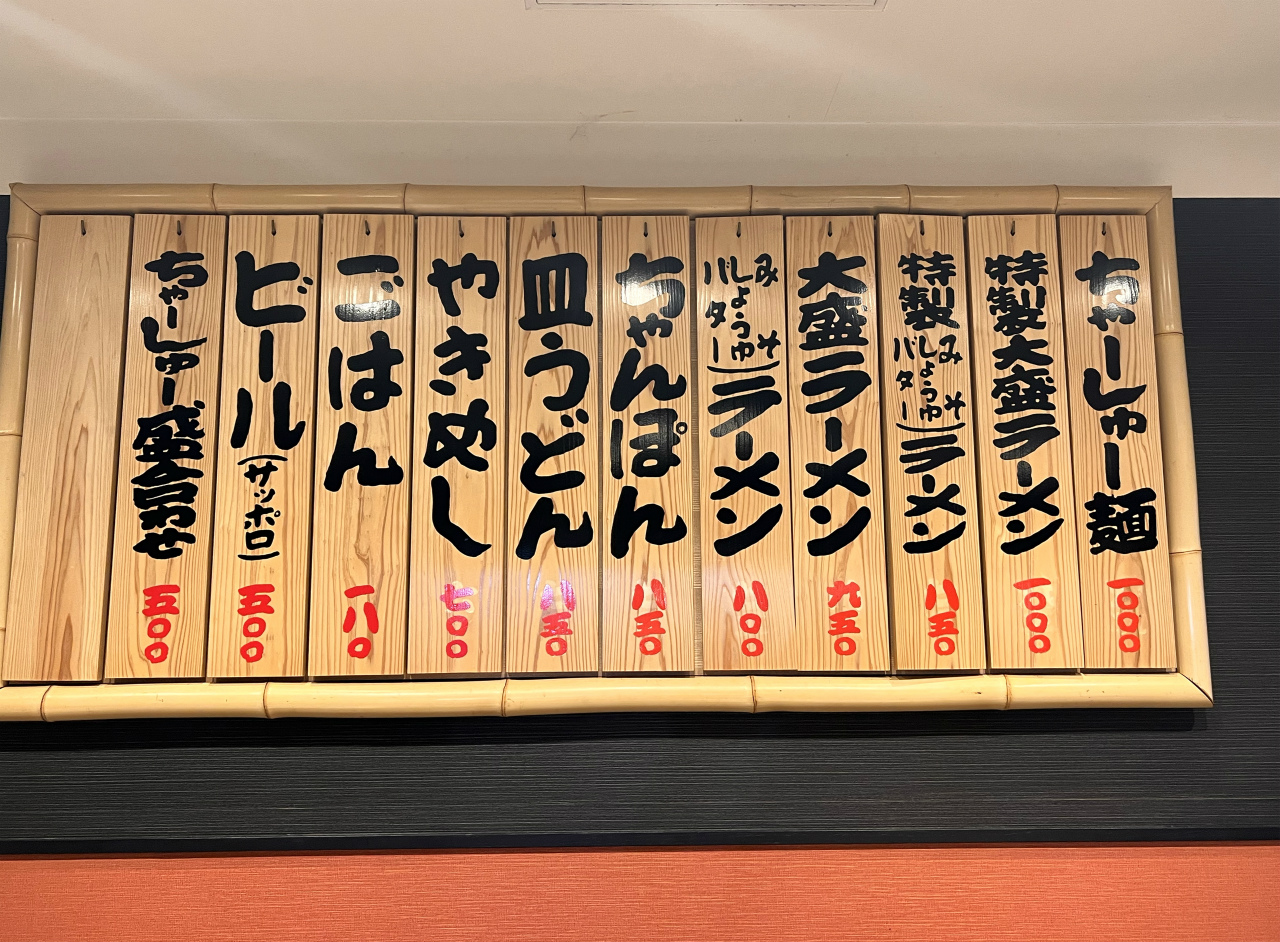 ちゃーしゅー麺 一〇〇〇
特製大盛ラーメン 一〇〇〇
特製(みそ しょうゆ バター)ラーメン 八五〇
大盛ラーメン 九五〇
(みそ しょうゆ バター)ラーメン 八〇〇
ちゃんぽん 八五〇
皿うどん 八五〇
やきめし 七〇〇
ごはん 一八〇
ビール(サッポロ) 五〇〇
ちゃーしゅー盛合わせ 五〇〇